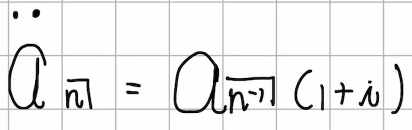 ä_{n⌉} = a_{n-1⌉} (1+i)